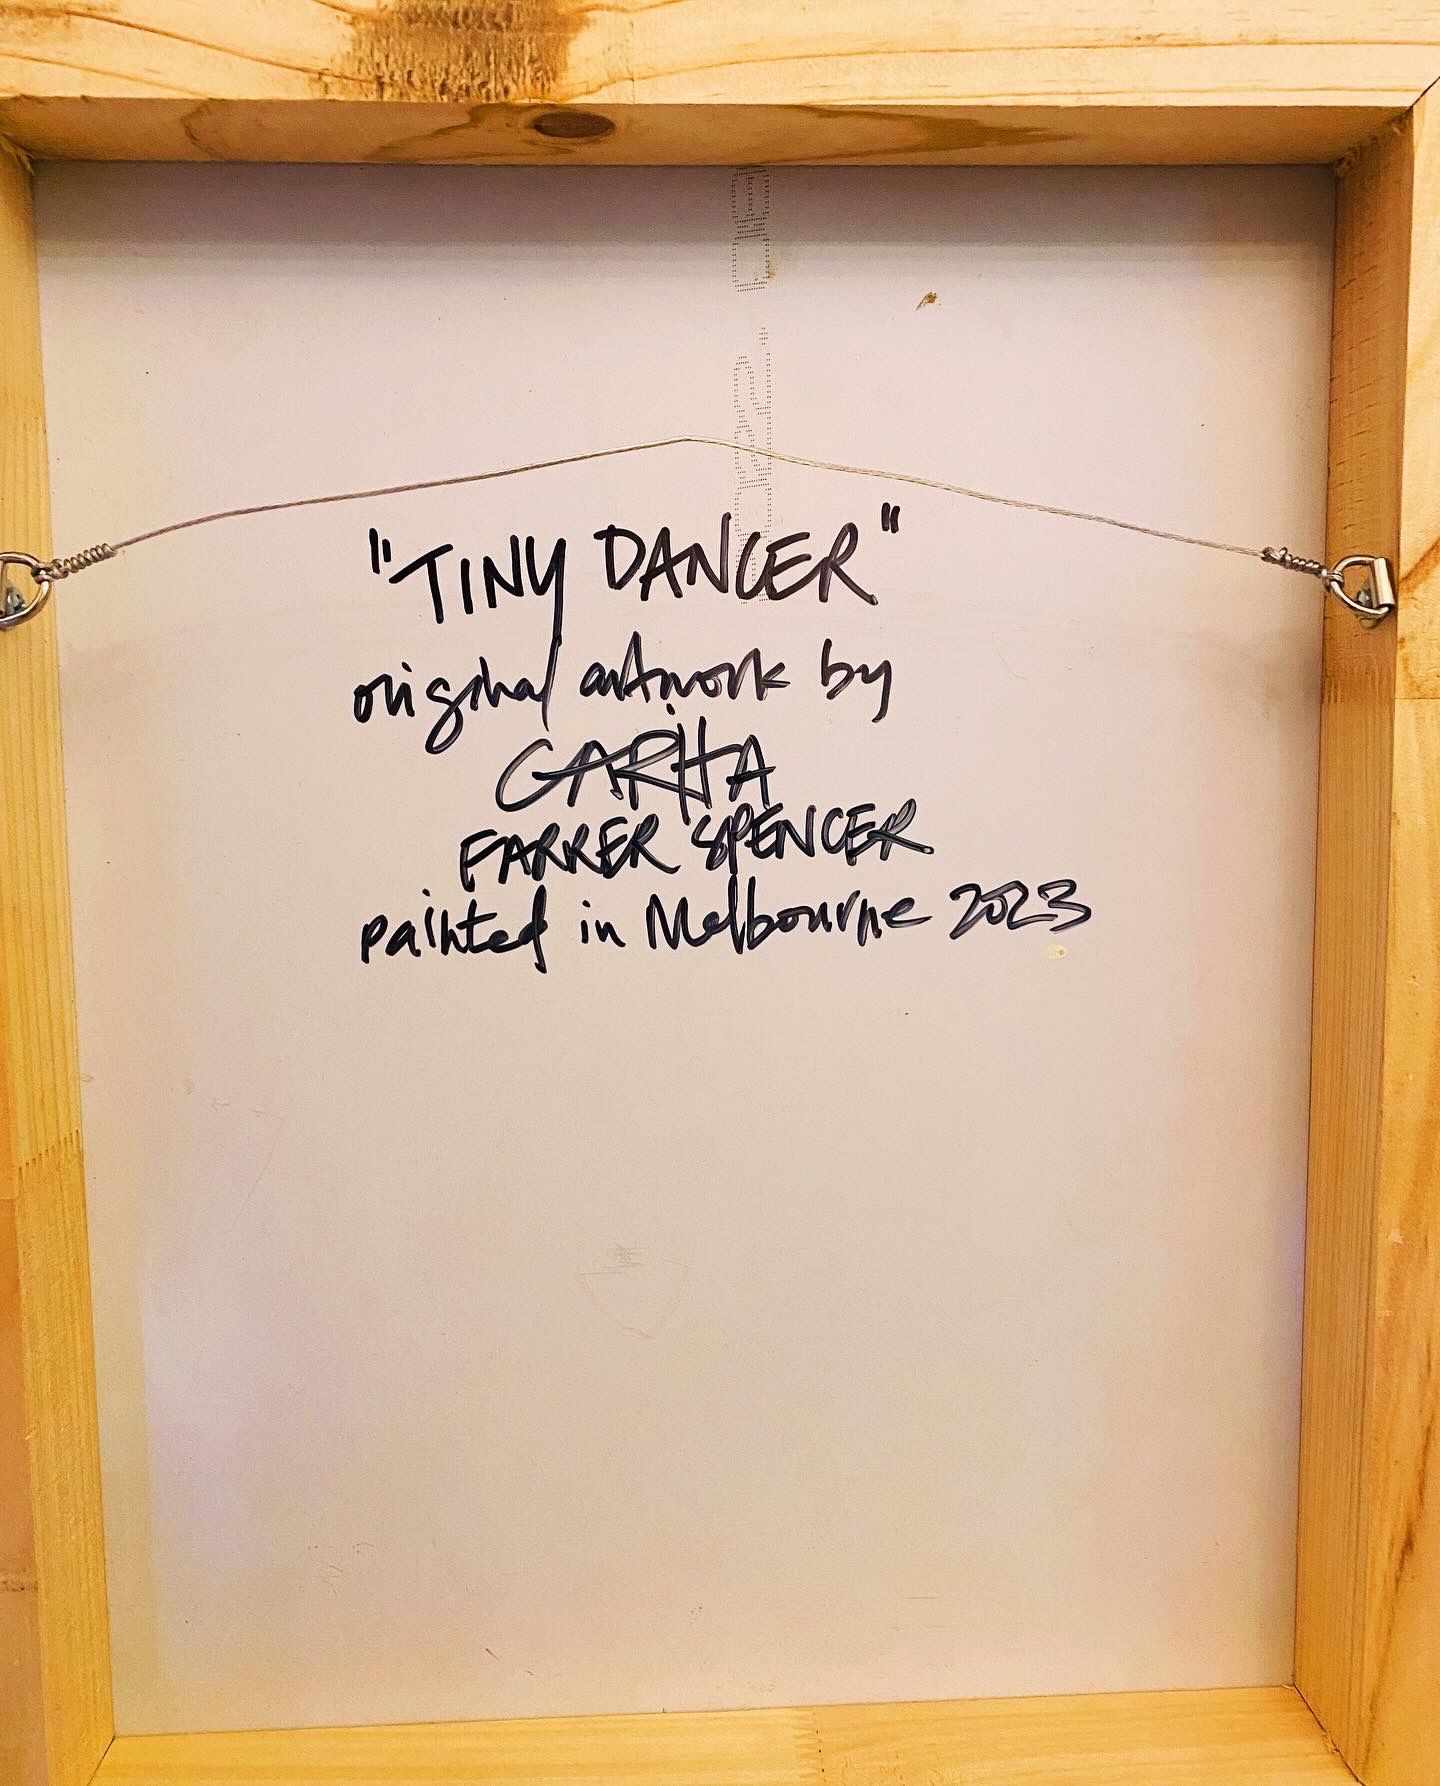 "TINY DANCER"
original artwork by
CARITA
FARRER SPENCER
painted in Melbourne 2023